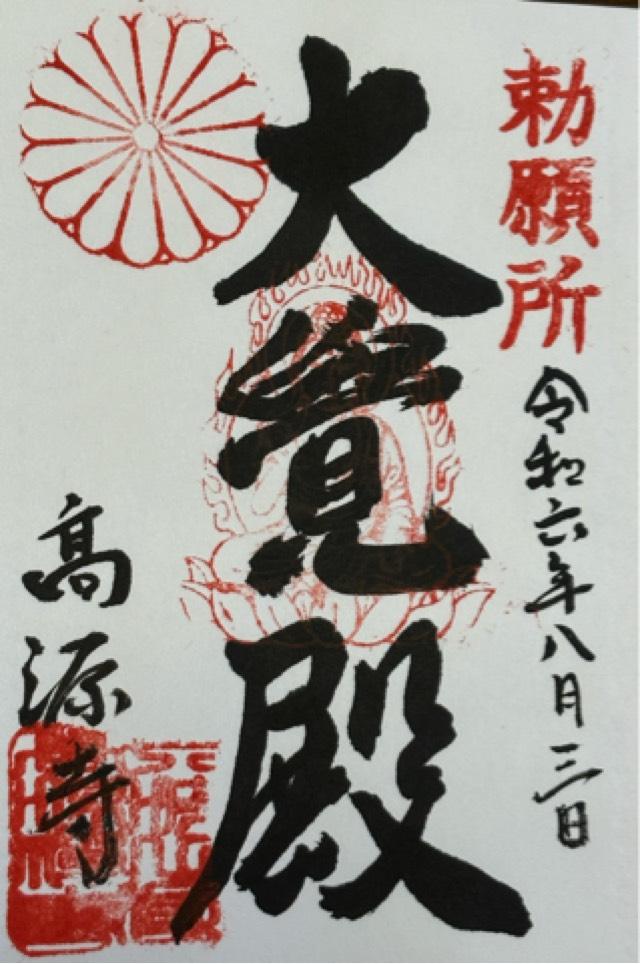 勅願所
令和六年八月三日
大覚殿
高源寺